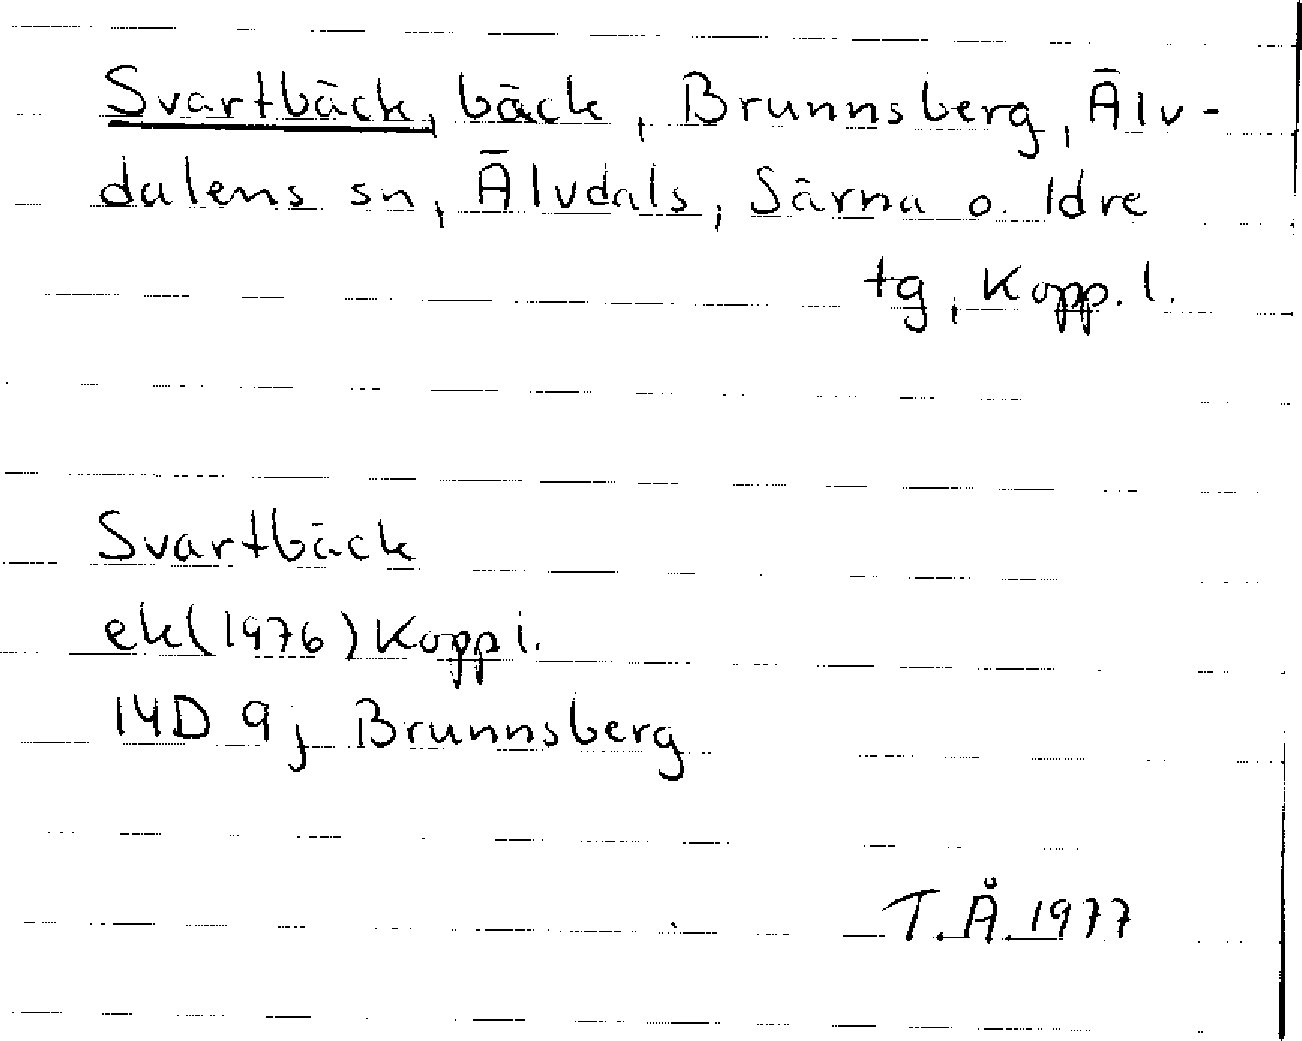 Svartbäck, bäck, Brunnsberg, Älv-
dalens sn, Älvdals, Särna o. Idre
tg, Kopp. l.
Svartbäck
ek(1976)Kopp l.
14D 9j Brunnsberg
T.Å.1977